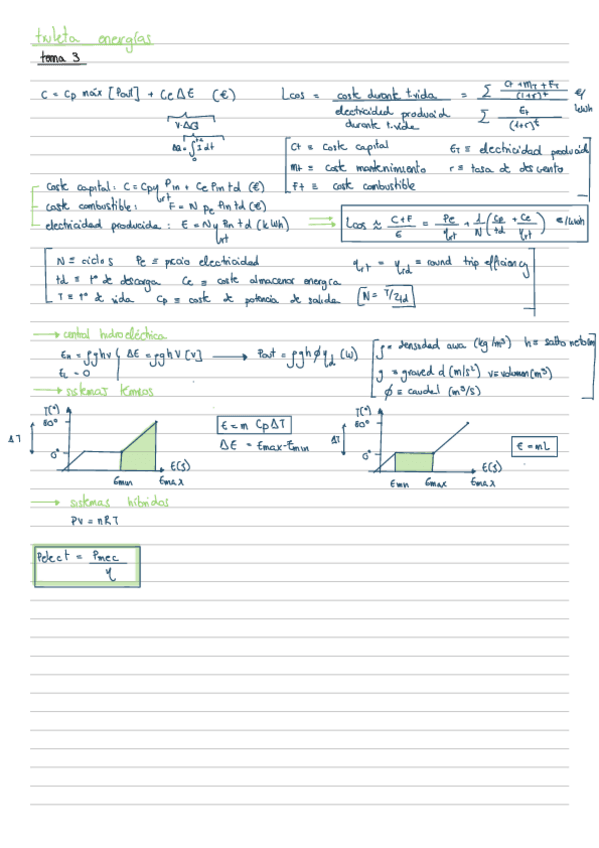 truleta energías
tema 3
C = Cp máx [Pout] + Ce ΔE (€)
V·ΔQ
ΔQ = ∫ I dt
0
Lcos = coste durante t.vida / electricidad producida durante t.vida = Σ (Ct + Mt + Ft)/(1+r)^t / Σ Et/(1+r)^t €/kWh
Ct ≡ coste capital Et ≡ electricidad producida
mt ≡ coste mantenimiento r ≡ tasa de descuento
Ft ≡ coste combustible
coste capital: C = Cp η Pin + Ce Pin td (€)
rt
coste combustible: F = N Pe Pin td (€)
electricidad producida: E = N η Pin td (kWh)
rt
Lcos ≈ (C+F)/E = Pe/ηrt + 1/N (Cp/td + Ce/ηrt) €/kWh
N ≡ ciclos Pe ≡ precio electricidad ηrt = ηrd = round trip efficiency
td ≡ tº de descarga Ce ≡ coste almacenar energía
T ≡ tº de vida Cp ≡ coste de potencia de salida N = T/2td
→ central hidroeléctrica
EH = ρghV
EL = 0
ΔE = ρghV [V] → Pout = ρghφηd (W)
ρ = densidad awa (kg/m³) h ≡ salto neto (m)
g = graved d (m/s²) v = volumen (m³)
φ ≡ caudal (m³/s)
→ sistemas térmicos
T(º)
80º
ΔT
0º
E(J)
Emin Emax
E = m Cp ΔT
ΔE = Emax - Emin
T(º)
80º
ΔT
0º
E(J)
Emin Emax Emax
E = mL
→ sistemas híbridos
PV = nRT
Pelect = Pmec / η